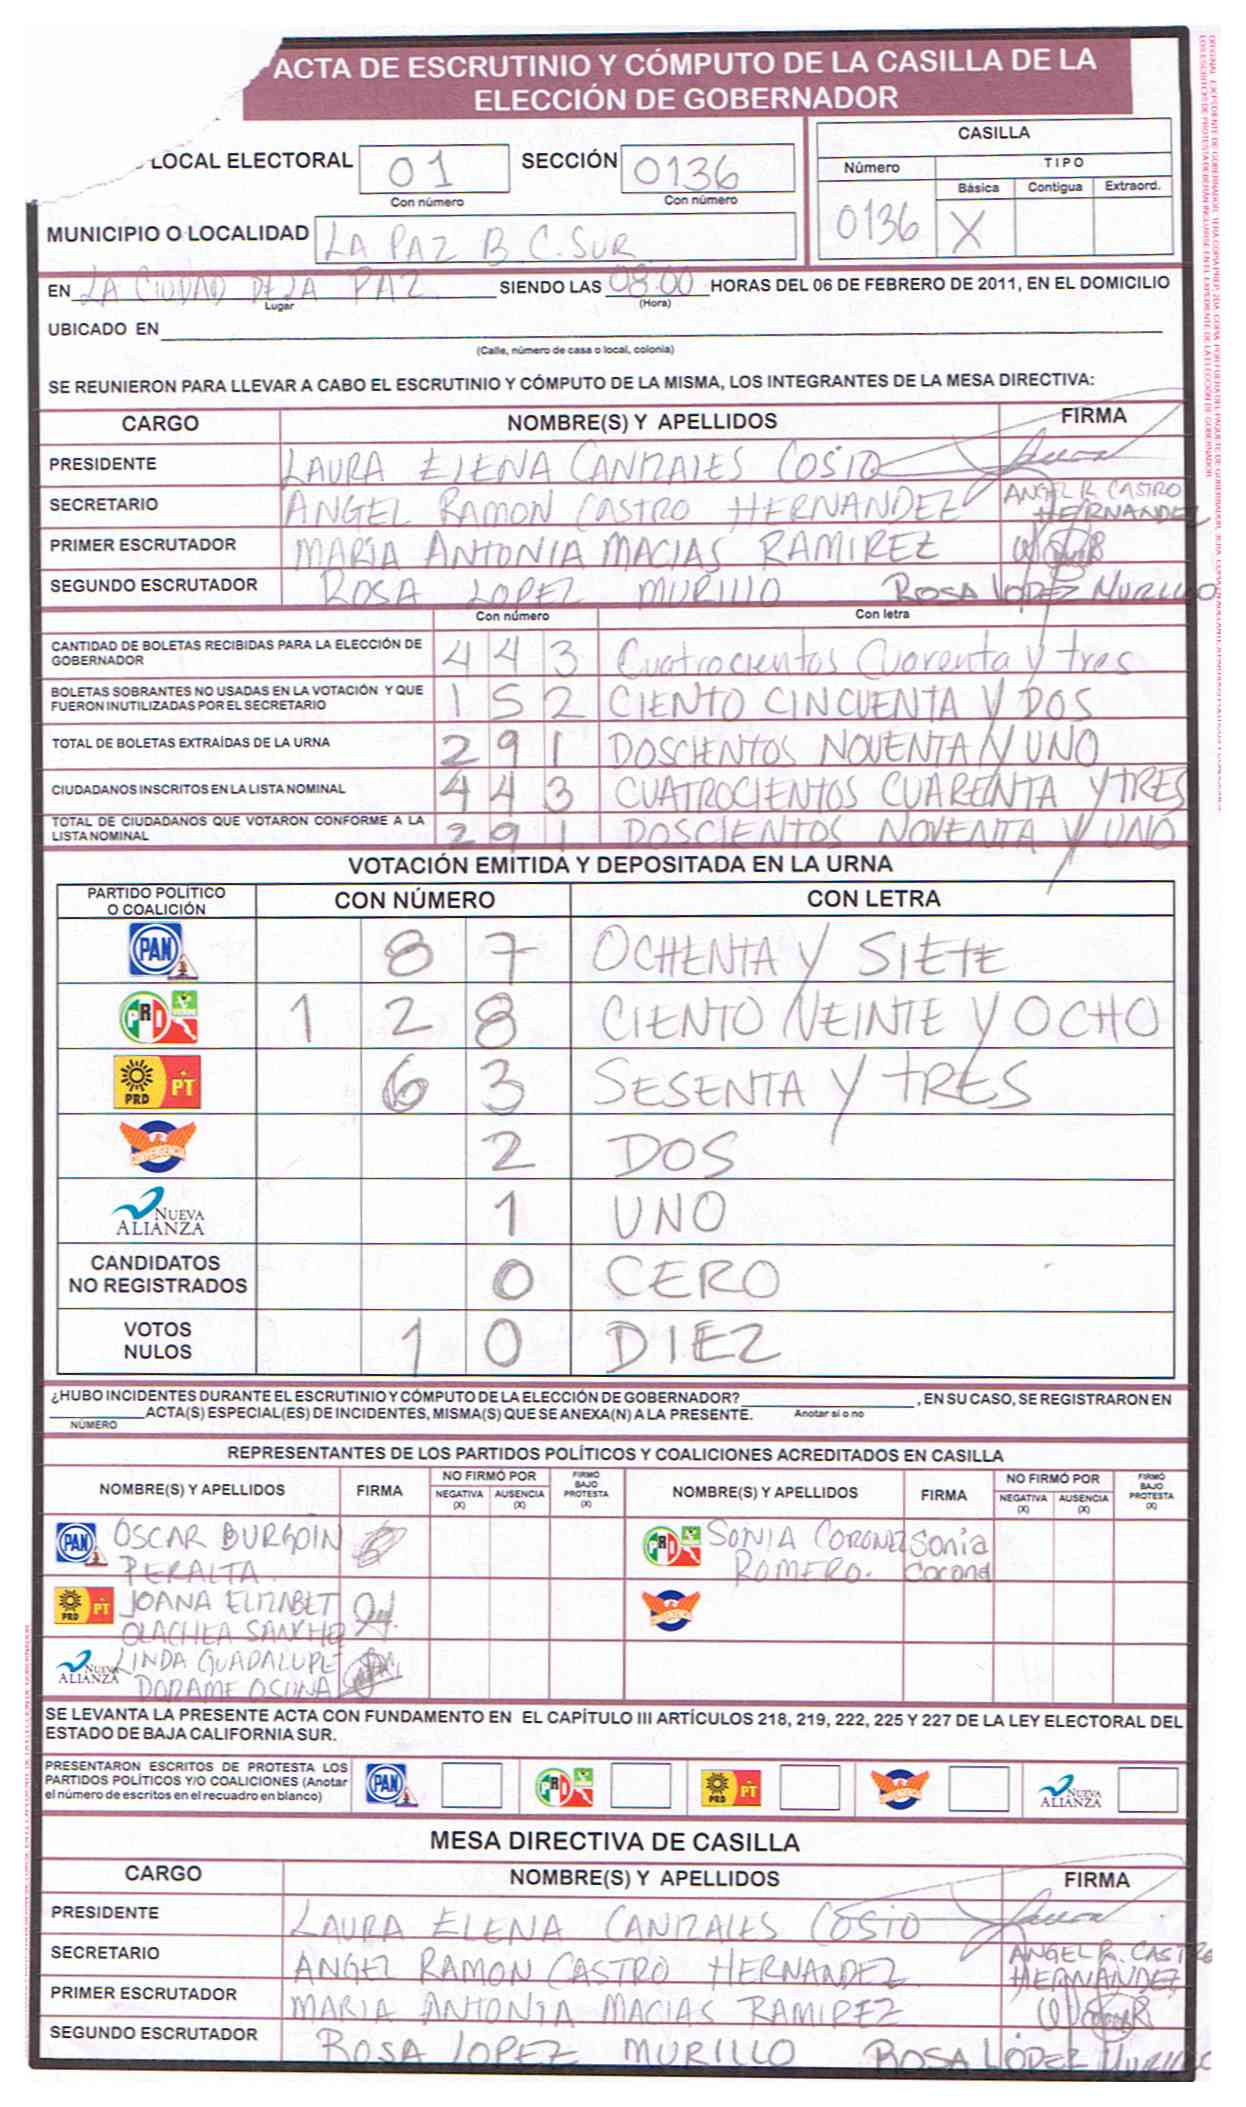 ACTA DE ESCRUTINIO Y CÓMPUTO DE LA CASILLA DE LA
ELECCIÓN DE GOBERNADOR
LOCAL ELECTORAL 01 SECCIÓN 0136
Con número Con número
CASILLA
Número TIPO
Básica Contigua Extraord.
0136 X
MUNICIPIO O LOCALIDAD LA PAZ B.C. SUR
EN LA CIUDAD DE LA PAZ SIENDO LAS 08:00 HORAS DEL 06 DE FEBRERO DE 2011, EN EL DOMICILIO
Lugar (Hora)
UBICADO EN
(Calle, número de casa o local, colonia)
SE REUNIERON PARA LLEVAR A CABO EL ESCRUTINIO Y CÓMPUTO DE LA MISMA, LOS INTEGRANTES DE LA MESA DIRECTIVA:
CARGO NOMBRE(S) Y APELLIDOS FIRMA
PRESIDENTE LAURA ELENA CANIZALES COSIO
SECRETARIO ANGEL RAMON CASTRO HERNANDEZ ANGEL R. CASTRO HERNANDEZ
PRIMER ESCRUTADOR MARIA ANTONIA MACIAS RAMIREZ
SEGUNDO ESCRUTADOR ROSA LOPEZ MURILLO ROSA LOPEZ MURILLO
Con número Con letra
CANTIDAD DE BOLETAS RECIBIDAS PARA LA ELECCIÓN DE GOBERNADOR 443 Cuatrocientos Cuarenta y tres
BOLETAS SOBRANTES NO USADAS EN LA VOTACIÓN Y QUE FUERON INUTILIZADAS POR EL SECRETARIO 152 CIENTO CINCUENTA Y DOS
TOTAL DE BOLETAS EXTRAÍDAS DE LA URNA 291 DOSCIENTOS NOVENTA Y UNO
CIUDADANOS INSCRITOS EN LA LISTA NOMINAL 443 CUATROCIENTOS CUARENTA Y TRES
TOTAL DE CIUDADANOS QUE VOTARON CONFORME A LA LISTA NOMINAL 291 DOSCIENTOS NOVENTA Y UNO
VOTACIÓN EMITIDA Y DEPOSITADA EN LA URNA
PARTIDO POLÍTICO O COALICIÓN CON NÚMERO CON LETRA
PAN 87 OCHENTA Y SIETE
PRI 128 CIENTO VEINTE Y OCHO
PRD PT 63 SESENTA Y TRES
CONVERGENCIA 2 DOS
NUEVA ALIANZA 1 UNO
CANDIDATOS NO REGISTRADOS 0 CERO
VOTOS NULOS 10 DIEZ
¿HUBO INCIDENTES DURANTE EL ESCRUTINIO Y CÓMPUTO DE LA ELECCIÓN DE GOBERNADOR? , EN SU CASO, SE REGISTRARON EN
ACTA(S) ESPECIAL(ES) DE INCIDENTES, MISMA(S) QUE SE ANEXA(N) A LA PRESENTE. Anotar sí o no
NÚMERO
REPRESENTANTES DE LOS PARTIDOS POLÍTICOS Y COALICIONES ACREDITADOS EN CASILLA
NOMBRE(S) Y APELLIDOS FIRMA NO FIRMÓ POR NEGATIVA (X) AUSENCIA (X) FIRMÓ BAJO PROTESTA (X) NOMBRE(S) Y APELLIDOS FIRMA NO FIRMÓ POR NEGATIVA (X) AUSENCIA (X) FIRMÓ BAJO PROTESTA (X)
PAN OSCAR BURGOIN PERALTA. PRI SONIA CORONEZ ROMERO. Sonia Corond
PRD PT JOANA ELIZABET OLACHEA SANCHE
NUEVA ALIANZA LINDA GUADALUPE DORAME OSUNA
SE LEVANTA LA PRESENTE ACTA CON FUNDAMENTO EN EL CAPÍTULO III ARTÍCULOS 218, 219, 222, 225 Y 227 DE LA LEY ELECTORAL DEL
ESTADO DE BAJA CALIFORNIA SUR.
PRESENTARON ESCRITOS DE PROTESTA LOS
PARTIDOS POLÍTICOS Y/O COALICIONES (Anotar
el número de escritos en el recuadro en blanco)
PAN PRI PRD PT NUEVA ALIANZA
MESA DIRECTIVA DE CASILLA
CARGO NOMBRE(S) Y APELLIDOS FIRMA
PRESIDENTE LAURA ELENA CANIZALES COSIO
SECRETARIO ANGEL RAMON CASTRO HERNANDEZ ANGEL R. CASTRO HERNANDEZ
PRIMER ESCRUTADOR MARIA ANTONIA MACIAS RAMIREZ
SEGUNDO ESCRUTADOR ROSA LOPEZ MURILLO ROSA LOPEZ MURILLO